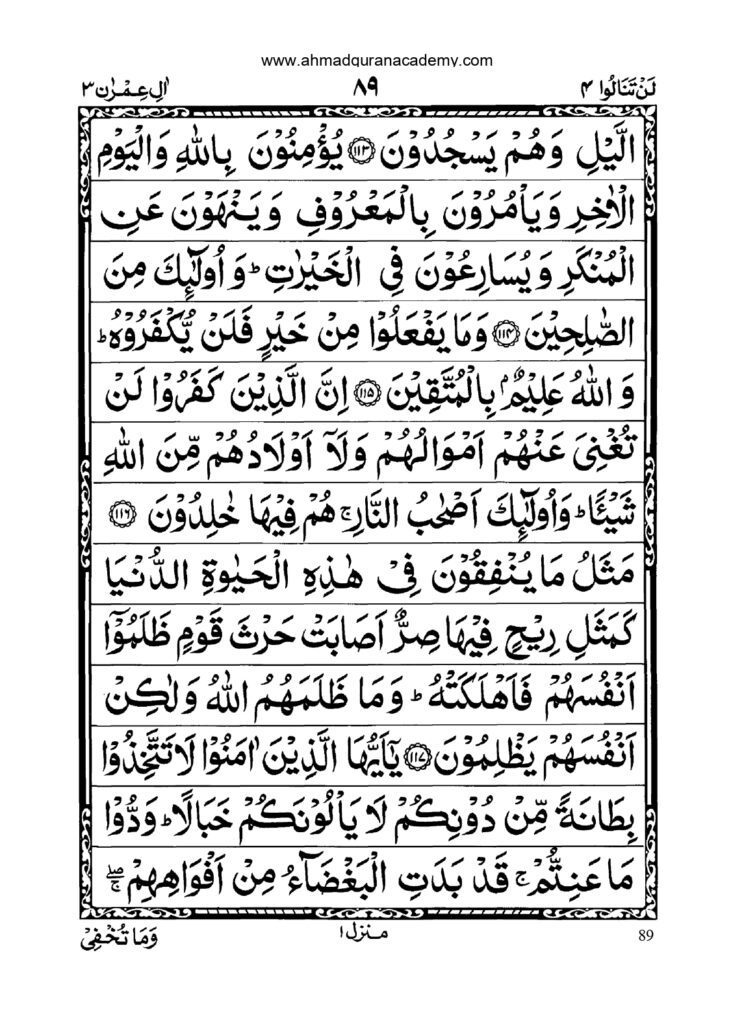 www.ahmadquranacademy.com
لَنْ تَنَالُوا ۴ ۸۹ اٰلِ عِمْرٰن ۳
الَّيْلِ وَهُمْ يَسْجُدُوْنَ ﴿۱۱۳﴾ يُؤْمِنُوْنَ بِاللّٰهِ وَالْيَوْمِ
الْاٰخِرِ وَيَاْمُرُوْنَ بِالْمَعْرُوْفِ وَيَنْهَوْنَ عَنِ
الْمُنْكَرِ وَيُسَارِعُوْنَ فِي الْخَيْرٰتِ ؕ وَاُولٰٓئِكَ مِنَ
الصّٰلِحِيْنَ ﴿۱۱۴﴾ وَمَا يَفْعَلُوْا مِنْ خَيْرٍ فَلَنْ يُّكْفَرُوْهُ ؕ
وَاللّٰهُ عَلِيْمٌۢ بِالْمُتَّقِيْنَ ﴿۱۱۵﴾ اِنَّ الَّذِيْنَ كَفَرُوْا لَنْ
تُغْنِيَ عَنْهُمْ اَمْوَالُهُمْ وَلَاۤ اَوْلَادُهُمْ مِّنَ اللّٰهِ
شَيْـًٔا ؕ وَاُولٰٓئِكَ اَصْحٰبُ النَّارِ ۚ هُمْ فِيْهَا خٰلِدُوْنَ ﴿۱۱۶﴾
مَثَلُ مَا يُنْفِقُوْنَ فِيْ هٰذِهِ الْحَيٰوةِ الدُّنْيَا
كَمَثَلِ رِيْحٍ فِيْهَا صِرٌّ اَصَابَتْ حَرْثَ قَوْمٍ ظَلَمُوْۤا
اَنْفُسَهُمْ فَاَهْلَكَتْهُ ؕ وَمَا ظَلَمَهُمُ اللّٰهُ وَلٰكِنْ
اَنْفُسَهُمْ يَظْلِمُوْنَ ﴿۱۱۷﴾ يٰۤاَيُّهَا الَّذِيْنَ اٰمَنُوْا لَا تَتَّخِذُوْا
بِطَانَةً مِّنْ دُوْنِكُمْ لَا يَاْلُوْنَكُمْ خَبَالًا ؕ وَدُّوْا
مَا عَنِتُّمْ ۚ قَدْ بَدَتِ الْبَغْضَآءُ مِنْ اَفْوَاهِهِمْ ۖۚ
وَمَا تُخْفِيْ منزل ۱ 89